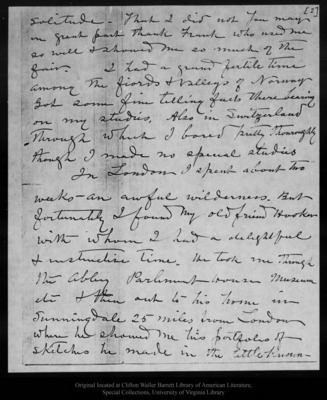 [2]
solitude. That I did not you may
in great part thank Frank who used me
so well & showed me so much of the
fair. I had a grand fertile time
among the fiords & valleys of Norway
Got some fine telling facts there bearing
on my studies. Also in Switzerland
through which I bored pretty thoroughly
though I made no special studies
In London I spent about two
weeks - an awful wilderness. But
fortunately I found my old friend Hooker
with whom I had a delightful
& instructive time. He took me through
the Abbey Parliment House Museum
etc & then out to his home in
Sunningdale 25 miles from London
where he showed me his portfolios of
sketches he made in the little known
Original located at Clifton Waller Barrett Library of American Literature,
Special Collections, University of Virginia Library